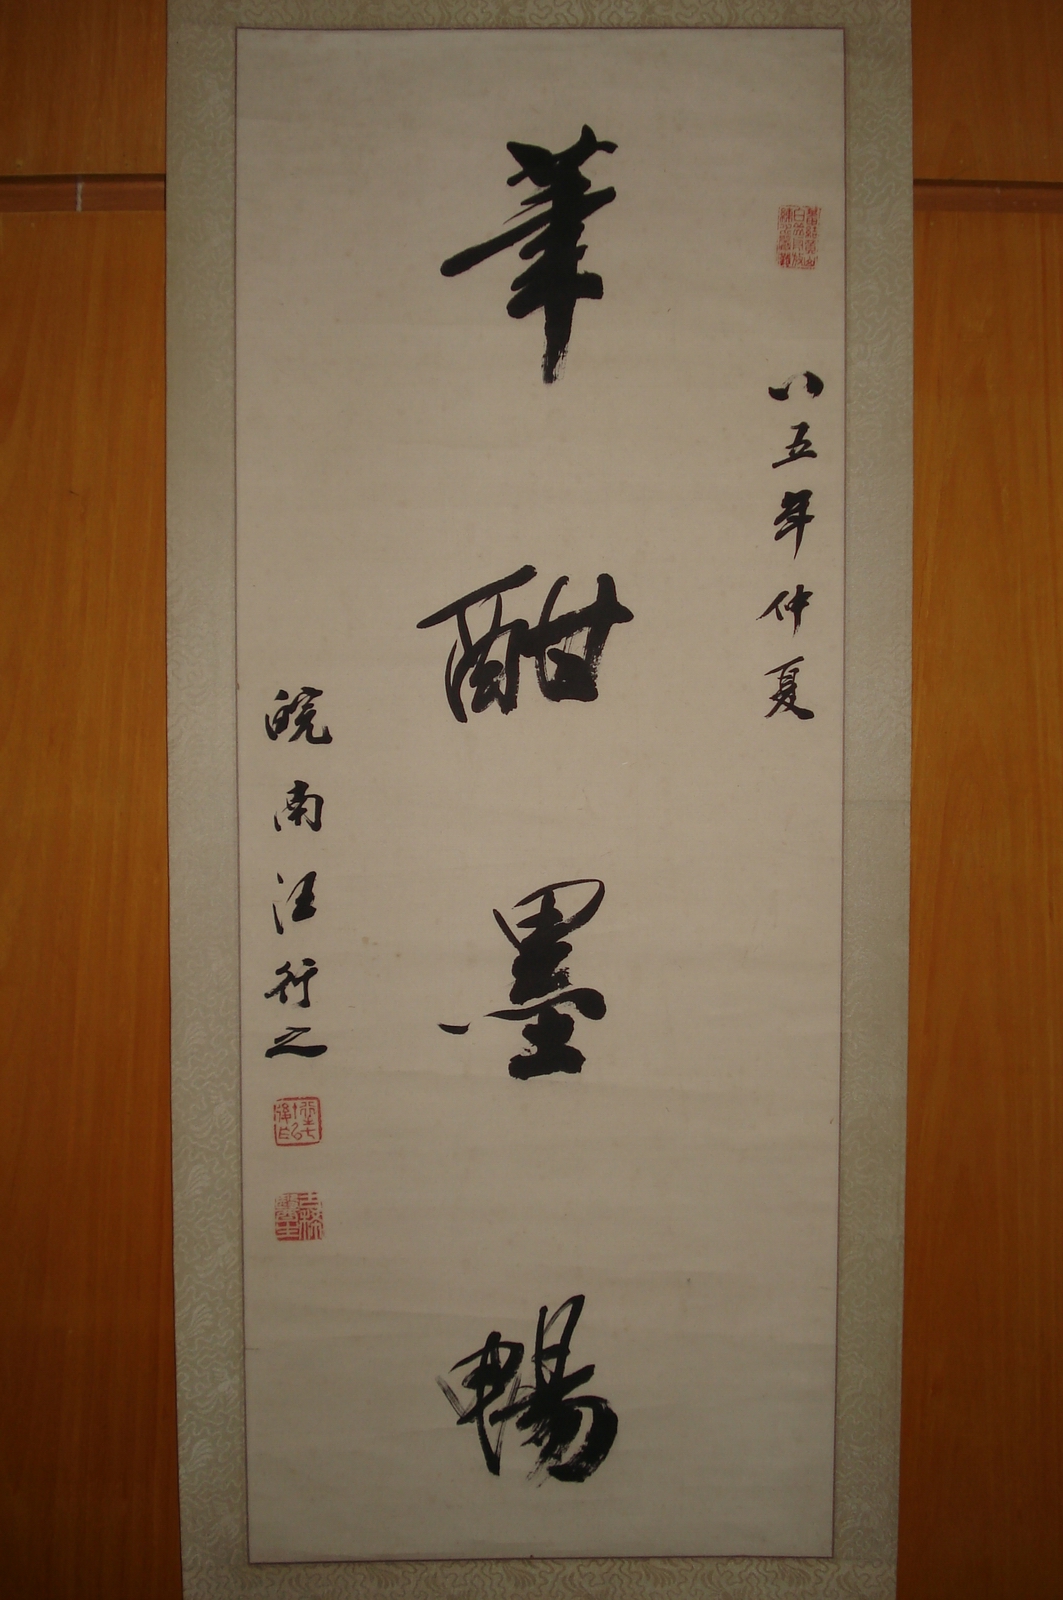 八五年仲夏
筆酣墨暢
皖南汪行之